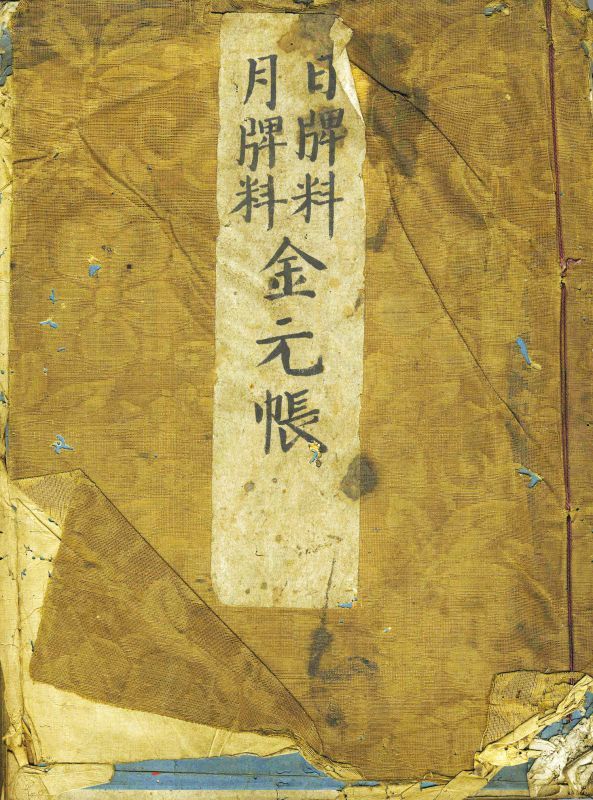 日牌料
月牌料
金元帳